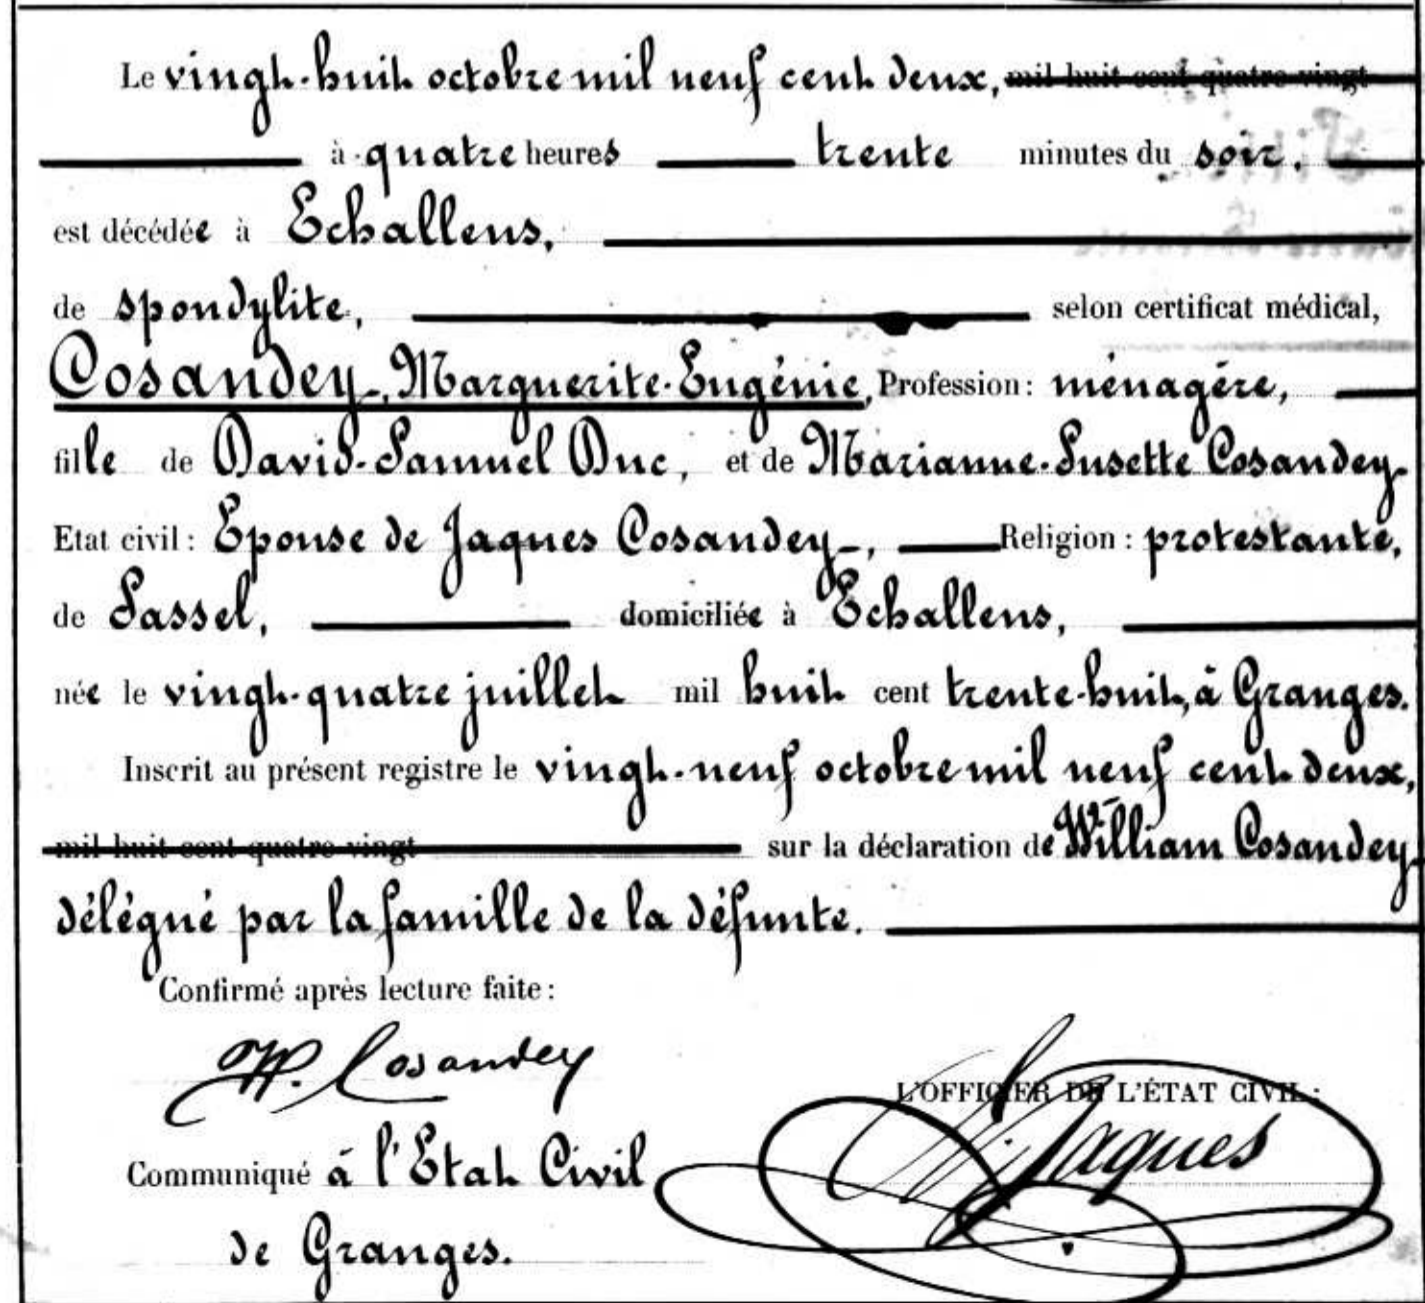 Le vingt-huit octobre mil neuf cent deux, mil huit cent quatre vingt
à quatre heures trente minutes du soir,
est décédée à Echallens,
de spondylite, selon certificat médical,
Cosandey, Marguerite-Eugénie, Profession: ménagère,
fille de David-Samuel Duc, et de Marianne-Susette Cosandey
Etat civil: Epouse de Jaques Cosandey, Religion: protestante,
de Sassel, domiciliée à Echallens,
née le vingt-quatre juillet mil huit cent trente-huit, à Granges.
Inscrit au présent registre le vingt-neuf octobre mil neuf cent deux,
mil huit cent quatre vingt sur la déclaration de William Cosandey
délégué par la famille de la défunte.
Confirmé après lecture faite:
W. Cosandey
L'OFFICIER DE L'ÉTAT CIVIL:
Jaques
Communiqué à l'Etat Civil
de Granges.